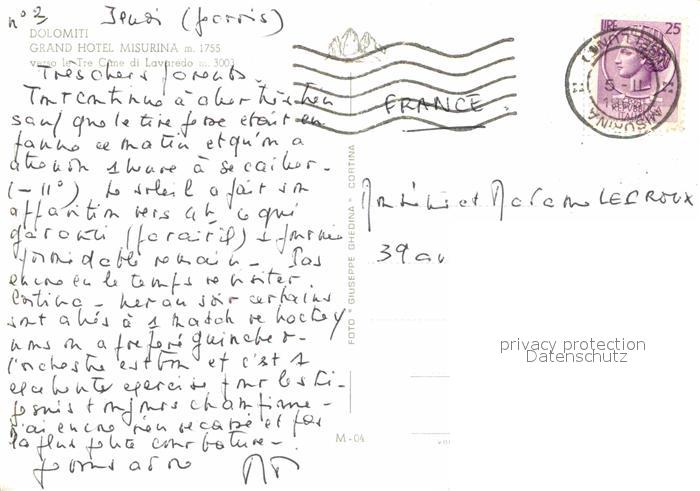 n° 3 Jeudi (
DOLOMITI
GRAND HOTEL MISURINA m. 1755
verso le Tre Cime di Lavaredo m. 3003
Tres chers parents -
Tout continue à aller très bien
sauf que le tire fesse était en
panne ce matin et qu'on a
attendu 1 heure à se cailler -
(-11°) Le soleil a fait son
apparition vers 4h, ce qui
garanti (parait il) 1 journée
formidable demain - Pas
encore eu le temps de visiter
Cortina - hier au soir certains
sont allés à 1 match de hockey
nous on a préféré guincher -
l'orchestre est bon et c'est 1
excellente exercice pour les
je suis toujours championne -
J'ai encore rien cassé et pas
la plus petite courbature -
FOTO "GIUSEPPE GHEDINA" CORTINA
M - 04
LIRE 25
MISURINA (BELLUNO)
5-11
ITALIA
FRANCE
Monsieur et Madame LEGROUX
39 av
privacy protection
Datenschutz